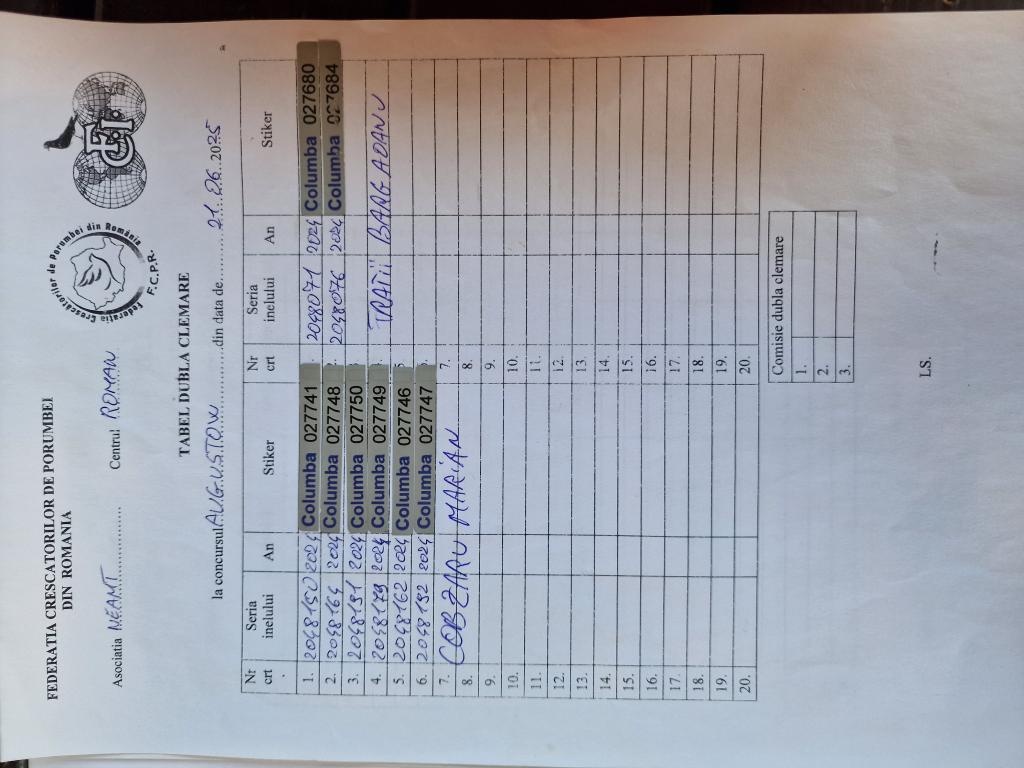 FEDERATIA CRESCATORILOR DE PORUMBEI
DIN ROMANIA
Asociatia NEAMT Centrul ROMAN
Federatia Crescatorilor de Porumbei din România
F.C.P.R.
FCI
TABEL DUBLA CLEMARE
la concursul AUGUSTOW din data de 21.06.2025
Nr crt Seria inelului An Stiker Nr crt Seria inelului An Stiker
1. 2048150 2024 Columba 027741 2048071 2024 Columba 027680
2. 2048164 2024 Columba 027748 2048076 2024 Columba 027684
3. 2048191 2024 Columba 027750
4. 2048179 2024 Columba 027749 FRATII BARGAOANU
5. 2048162 2024 Columba 027746
6. 2048192 2024 Columba 027747
7. COBZARU MARIAN 7.
8. 8.
9. 9.
10. 10.
11. 11.
12. 12.
13. 13.
14. 14.
15. 15.
16. 16.
17. 17.
18. 18.
19. 19.
20. 20.
Comisie dubla clemare
1.
2.
3.
LS.